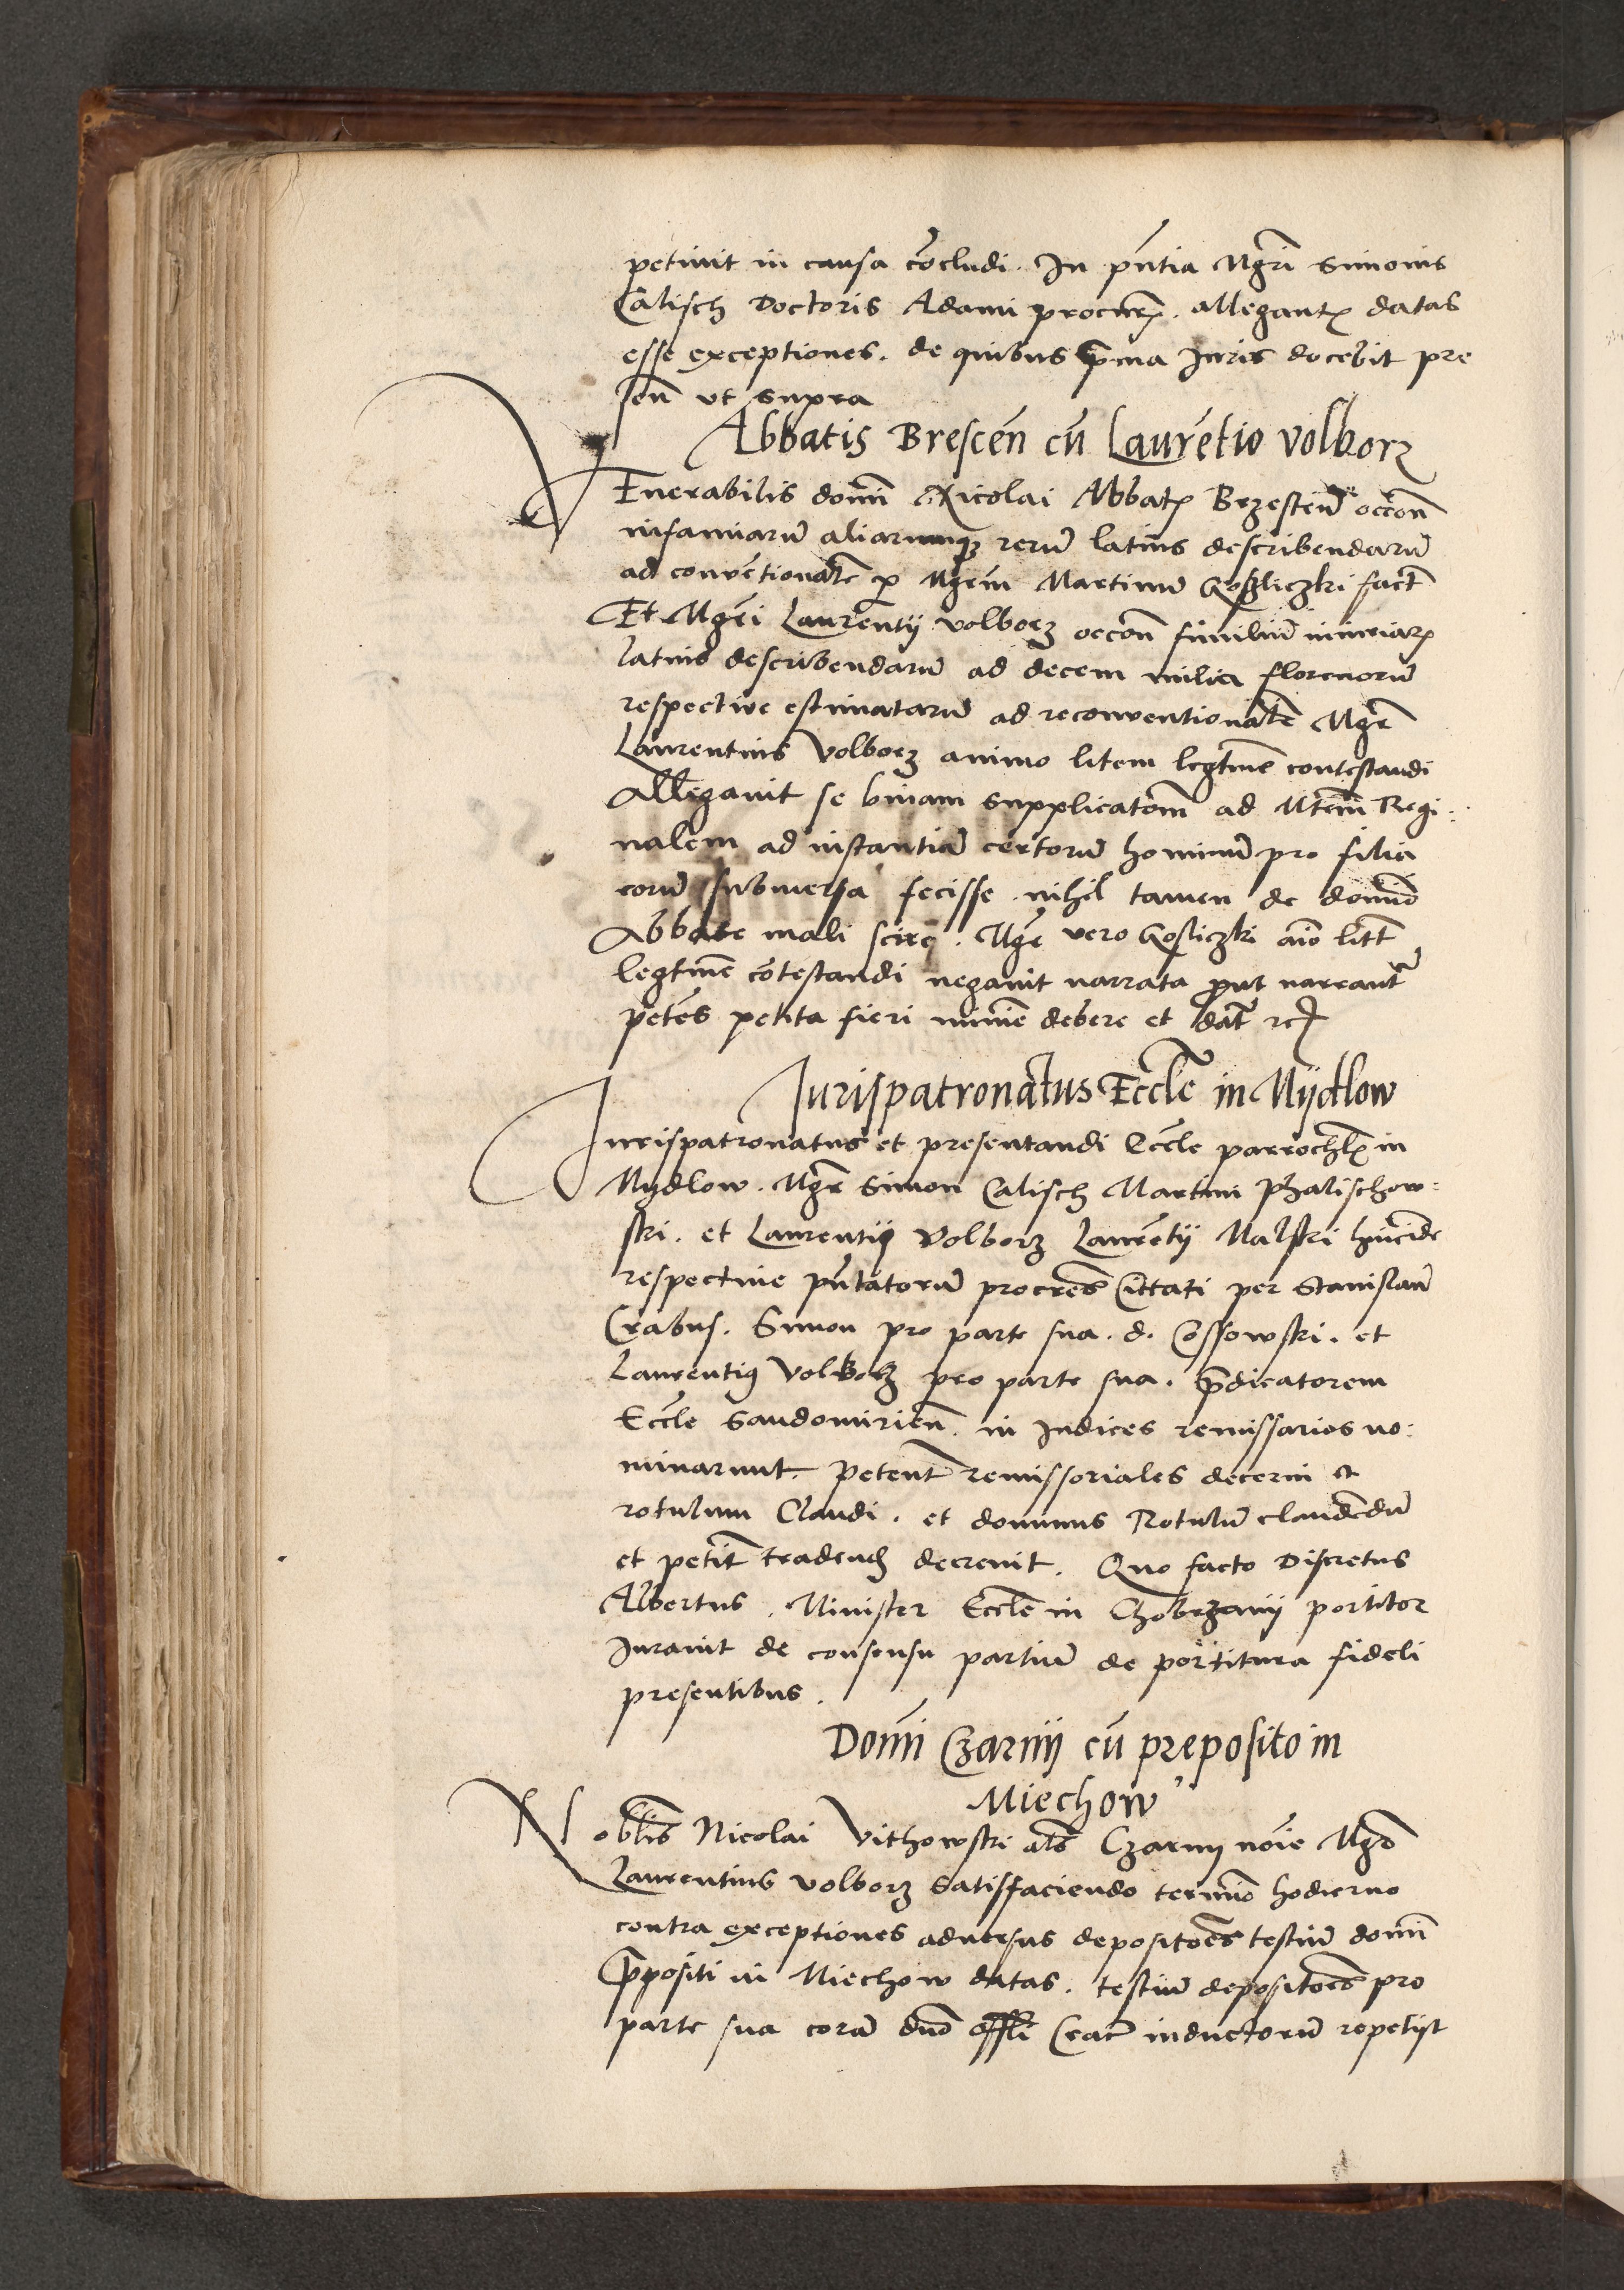 petivit in causa co͞cludi. In pn̄tia Mgr̄i Simonis
Calisch Doctoris Adami procur̄. allegant̄ datas
esse exceptiones. de quibus p̄ma Juris docebit pre
sen̄ ut supra
Abbatis Brescen̄ cū Laurēntio volborz
VEnerabilis domī Nicolai Abbat̄ Brzesteñ occoñ
infamiarū aliarumq rerū latius describendarū
ad conventionalē p Mgrm̄ Martinū Gosliczki fact̄
Et Mgr̄i Laurentij volborz occoñ similiū iniuriar̄
latius describendarū ad decem milia florenorū
respective estimatarū ad reconventionalē Mgr̄
Laurentius Volborz animo litem legtīme contestandi
Allegavit se binam supplicatōm̄ ad Mtem̄ Regi:
nalem ad instantiā certorū hominū pro filia
eorū submersa fecisse. nihil tamen de domīo
Abbate mali scire. Mgr̄ vero Gosliczki aīo litt̄
legtīme cōtestandi negavit narrata prout narrant̄
petēs petita fieri minīe debere et dāt̄ rc̄
Jurispatronatus Eccl̄e in Mijdlow
Jurispatronatus et presentandi Eccl̄e parrochl̄ in
Mydlow. Mgr̄ Simon Calisch Martini Phalischow:
ski. et Laurentij Volborz Laurētij Malski hincinde
respective pn̄tatorū procr̄es Cittati per Stanislaū
Crabus. Simon pro parte sua. d. Cossowski. et
Laurentiꝯ Volborz pro parte sua. p̄dicatorem
Eccl̄e Sandomirieñ. in Judices remissarios no:
minarunt. petent̄ remissoriales decerni et
rotulum Claudi. et dominus Rotulū claudēdū
et petit̄ tradend̄ decrevit. Quo facto Discretus
Albertus. Minister Eccl̄e in Chobrzanij portitor
Juravit de consensu partiū de portitura fideli
presentibus.
Domī Czarnij cū preposito in
Miechow
Nobl̄is Nicolai Vithowski als̄ Czarnij noīe Mgr̄
Laurentius volborz Satisfaciendo termīo hodierno
contra exceptiones adversus depositōes testiū domī
p̄positi in Miechow datas. testiū depositōes pro
parte sua corā dn̄o offl̄i Crac̄ inductorū repetijt